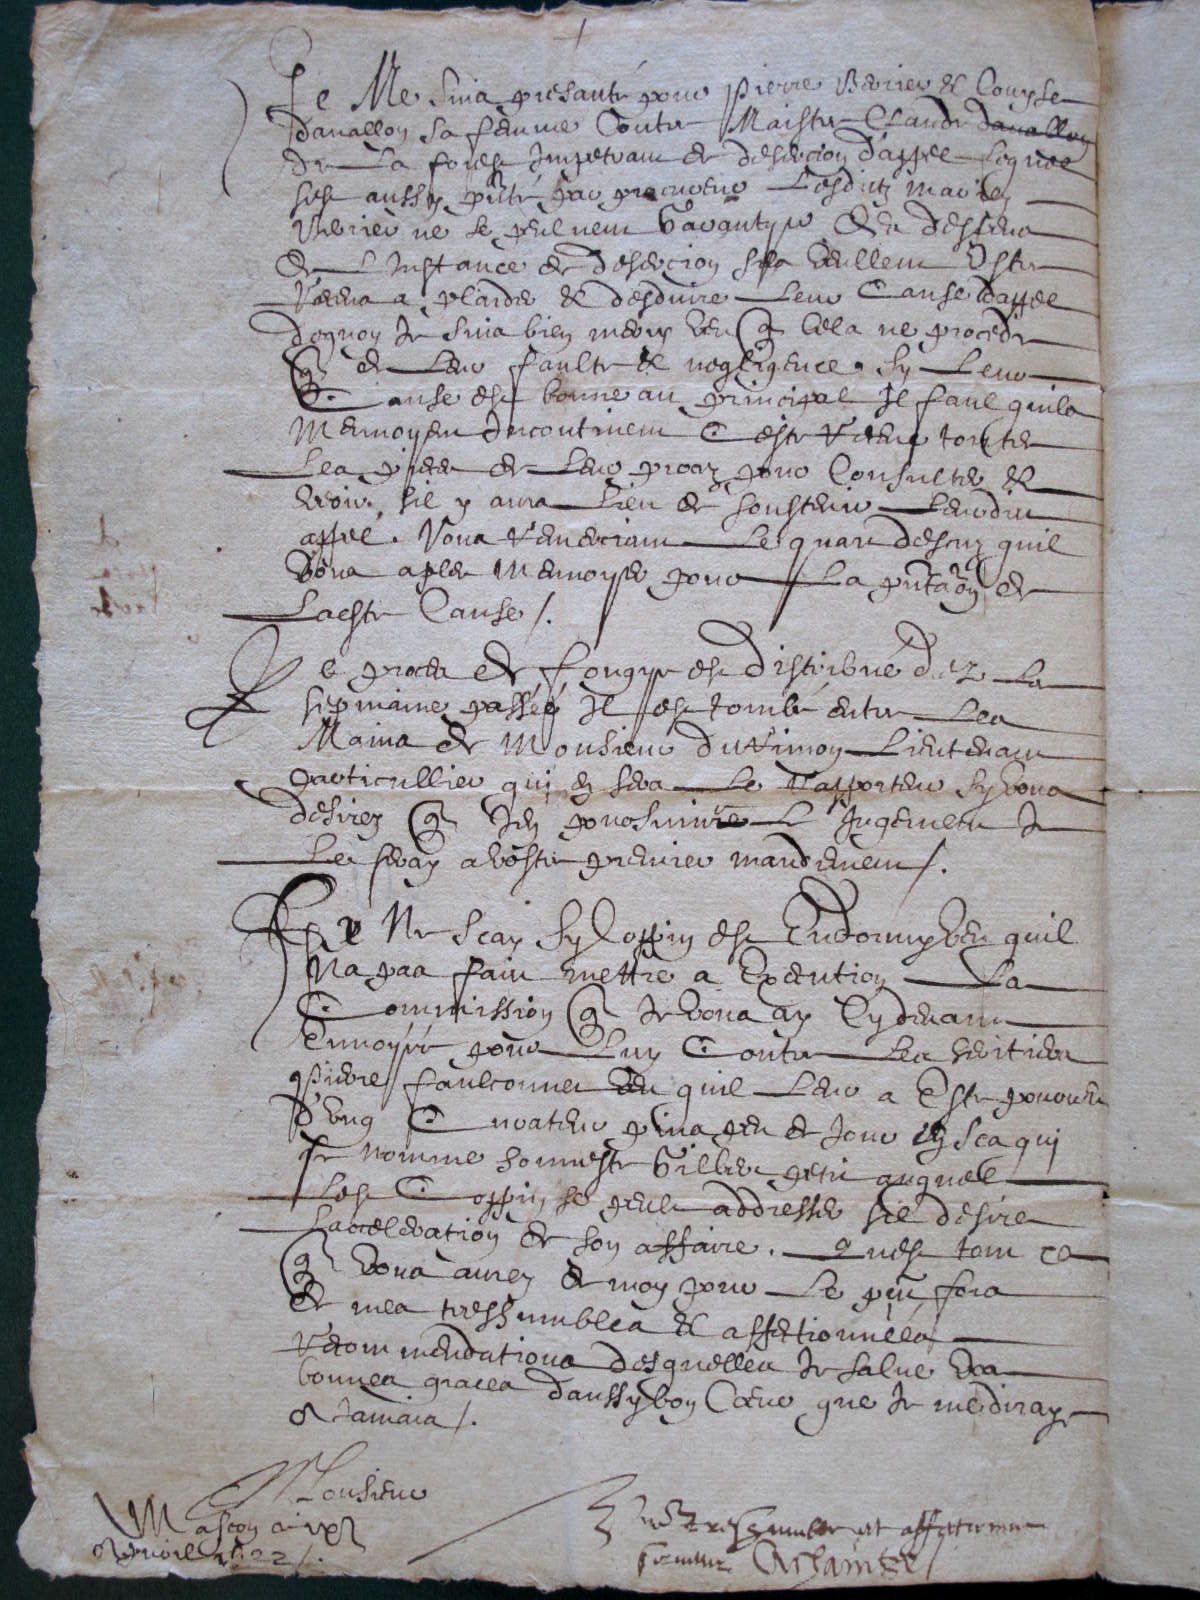 Je Me suis presanté pour Pierre Verrier et
davallon sa femme Contre Maistre Claude davallon
de La forest Impetrant de desercion dappel Lequel
sest aussy pnté par procureur Lesdictz mariez
Verrier ne se peulvent Garantyr des despens
de Linstance de desercion silz veullent Estre
Receus a plaider et desduire Leur Cause dappel
dequoy Je suis bien marry veu que Cela ne procede
que de Leur faulte et negligence. Sy Leur
Cause est bonne au principal Il fault quilz
Menvoyent Incontinent Ceste toutes
Les pieces de Leur procez pour Consulter et
veoir sil y aura Lieu de soustenir Leurdit
appel. Vous Remerciant Le quart descuz quil
vous a pleu Menvoyer pour La pntaōn de
Ladicte Cause /.
Le proces de fougere est distribué dez La
sepmaine passée Il est tombé entre Les
Mains de Monsieur Lieutenant
particullier qui en sera Le Rapporteur sy vous
desirez que Jen poursuive Le Jugement Je
Le feray a vostre premier mandement /.
Je Ne scay sy Coppin est Endormy veu quil
Na pas faict mettre a Execution La
Commission que Je vous ay Cydevant
Envoyée pour Luy Contre Les heritiers
Pierre faulconnet veu quil Leur a Esté pourveu
d'ung Curateur puis peu de Jours en sca qui
se nomme honneste Gilbert petit auquel
Led Coppin se peult addresser sil desire
Lacceleration de son affaire. Quest tout ce
que vous aurez de moy pour Le pnt fors
de mes treshumbles et affectionnées
Recommendations desquelles Je salue voz
bonnes graces daussy bon Coeur que Je me diray
A Jamais /.
Monsieur
Mascon ce
apvril 1622 /.
Vre Treshumble et affectionné
serviteur